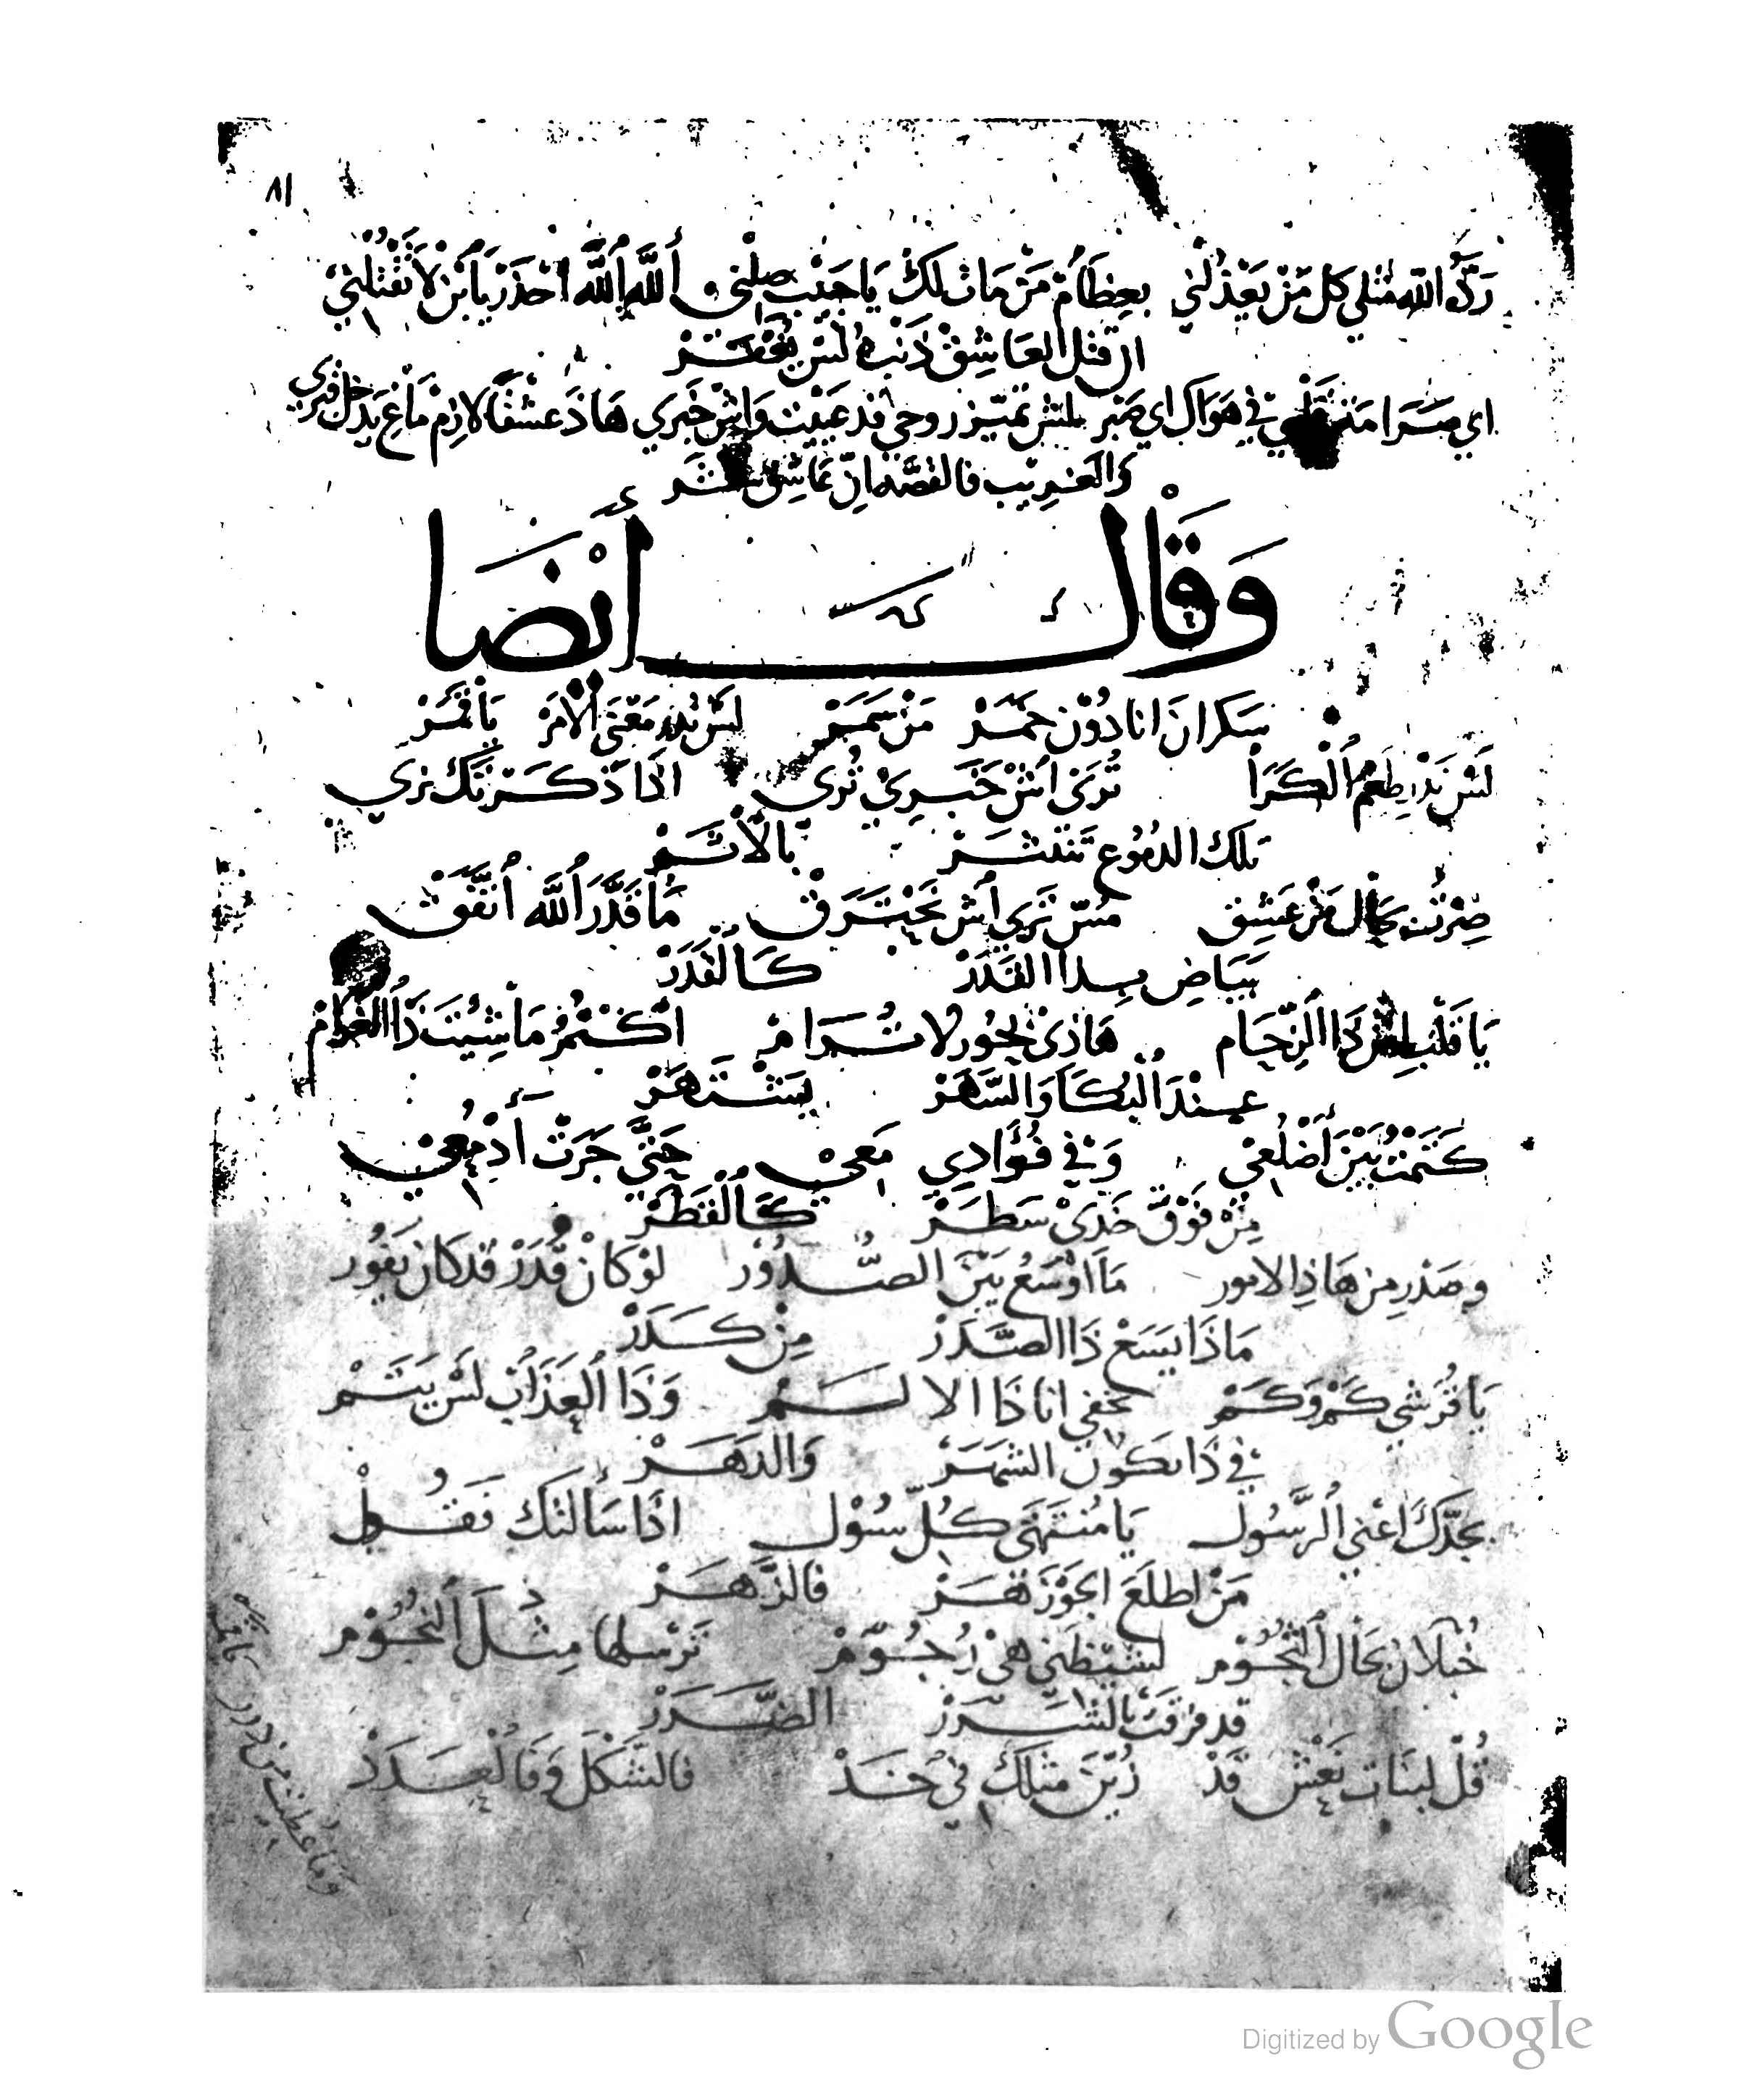 ٨١
رَدّ الله مثلي كل مَنْ يَعْذُلْني بعِظَامْ مَنْ مَاتْ لكْ يَا حَبيْب صلْني أللَّه أللَّه أحْذَرْ يَا بَنْ لاَ تَقْتُلْنِيْ
ان قتل العَاشِقْ ذَنْبهُ لَسْ يُغْتَفَرْ
اي صَبَرَا في هَوَاك اي صَبْر لسْ تميّز روحي قد عَيَيْت وَاشْ خَبَري هَاذَ عشقًا لازمْ مَاعِ يَدخل قبري
وَالغريْب فالقصّه انّ
وَقَالَ أيْضَا
سَكرانَ انا دُوْن خمَرْ مَنْ سَمَرْ لَسْ تدر مَعْنَى الأمَرْ يَا قَمَرْ
لَسْ نَدْر طَعْم الْكَرَا تُرَى اشْ خَبَرِيْ تُري اذَا ذَكَرْتَك نري
تلك الدمُوع تَنْتَثَرْ بالأثَرْ
صِرْتُ بحَال مَنْ عَشِق مسّ نَرى أشْ نَحْتَرَقْ مَا قَدَّرَ أللَّه أتَّفَقْ
بَيَاضِ بِدا القَدَرْ كَالقَدَرْ
يَا قَلْب لَسْ ذَا الزِّحَام هَاذِيْ بحُور لا تُرَامْ اكْتُمْ مَا شِيْتَ ذَا الغَرَامْ
عِنْدَ الْبُكَا وَالسَّهَرْ يَشْتَهَرْ
كَتَمْتُ بَيْنَ أَضْلُعِيْ وَفي فُؤَادِي مَعيْ حَتَّى جَرَتْ أَدْمُعِيْ
مِنْ فَوْقَ خَدّيْ سَطَرْ كَالْقَطَرْ
وصَدْر مِن هَاذِ الامور مَا اوْسَعُ بَيْنَ الصُّدُوْر لوْ كَانْ قُدَرْ قد كان نَفُور
مَاذَا يَسَعْ ذَا الصَّدَرْ مِنْ كَدَرْ
يَا قُرَشي كَمْ وَكَمْ نخفي انا ذَا الالَمْ وَذَا الْعَذَابْ لَسْ يَتَمْ
في ذَا نَكُون الشهَرْ وَالدَهَرْ
بجَدِّكَ اعْني الرَّسُول يَا مُنتَهَى كُلّ سُوْل اذَا سَألتَك تَقُول
مَنْ اطلَعَ الجَوْزَهَرْ فالزَّهَرْ
خُيْلانْ بحَال النُّجُوْم لشَيْطَني هيْ رُجُوْمْ تَرْسلها مِثْلَ النجُوْم
قد فرقَتْ بالشَرَرْ الضَّرَرْ
قُلْ لبنَات نَعْش قَدْ زُيّنَ مثلكْ في خَدْ فالشَكْلَ وَفَالْعَدَدْ
وَمَا عُطيت من دُرر